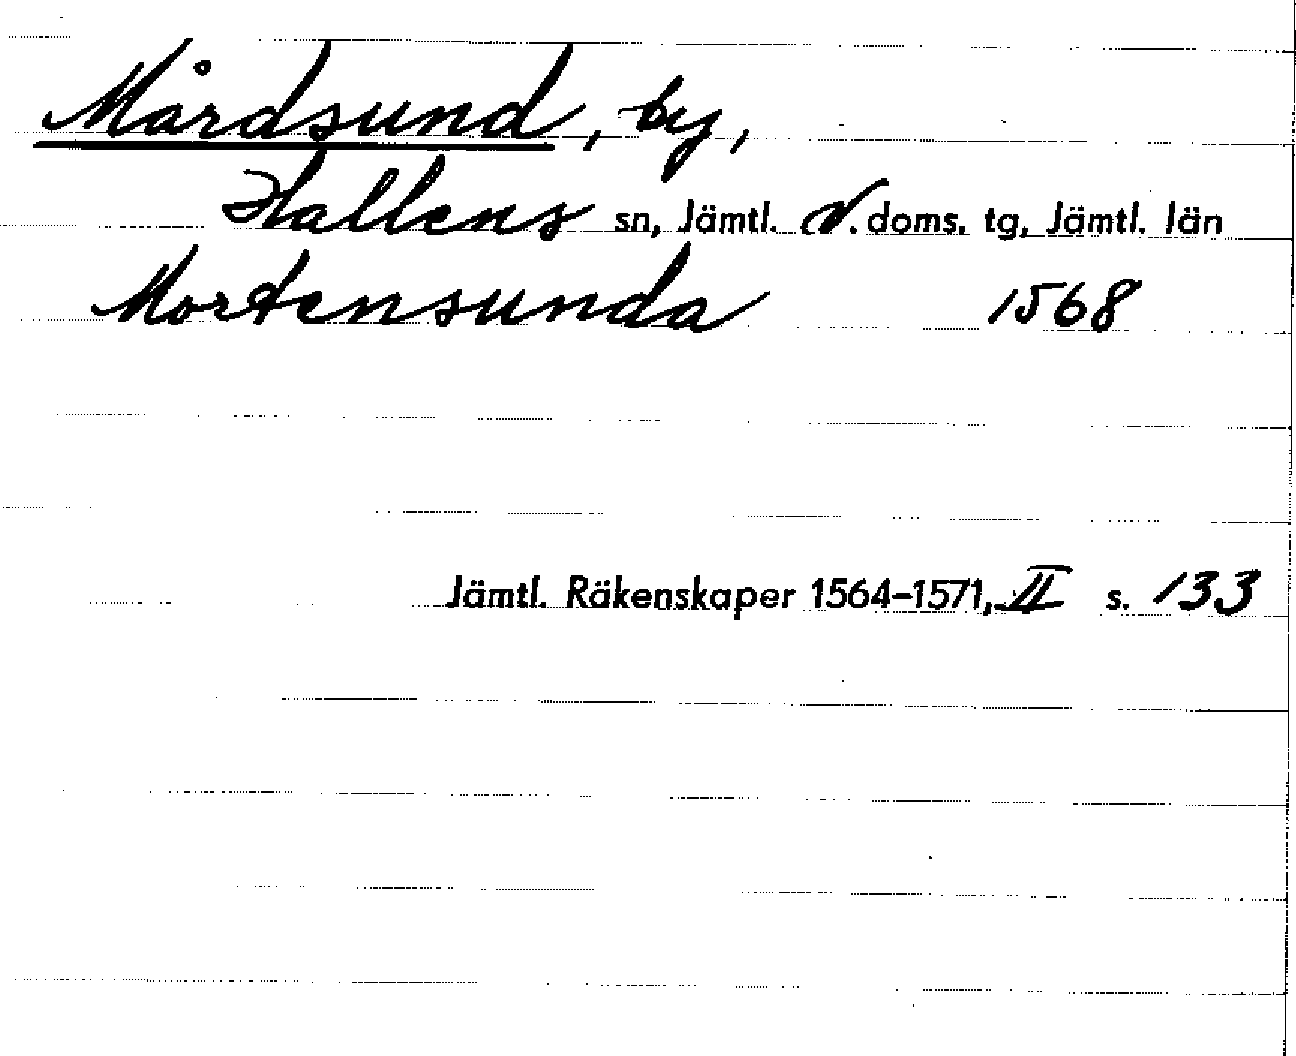 Mårdsund, by,
Hallens sn, Jämtl. V. doms. tg, Jämtl. län
Mortensunda 1568
Jämtl. Räkenskaper 1564-1571, II s. 133